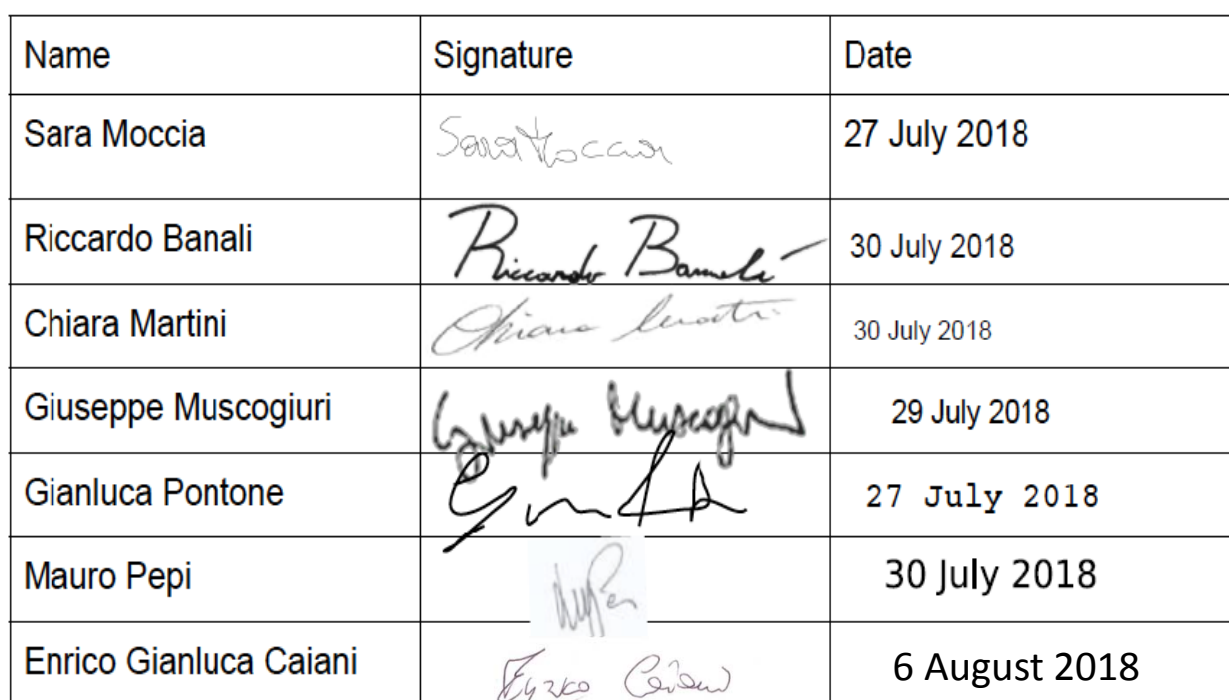 Name Signature Date
Sara Moccia Sara Moccia 27 July 2018
Riccardo Banali Riccardo Banali 30 July 2018
Chiara Martini Chiara 30 July 2018
Giuseppe Muscogiuri Giuseppe Muscogiuri 29 July 2018
Gianluca Pontone 27 July 2018
Mauro Pepi 30 July 2018
Enrico Gianluca Caiani Enrico Caiani 6 August 2018